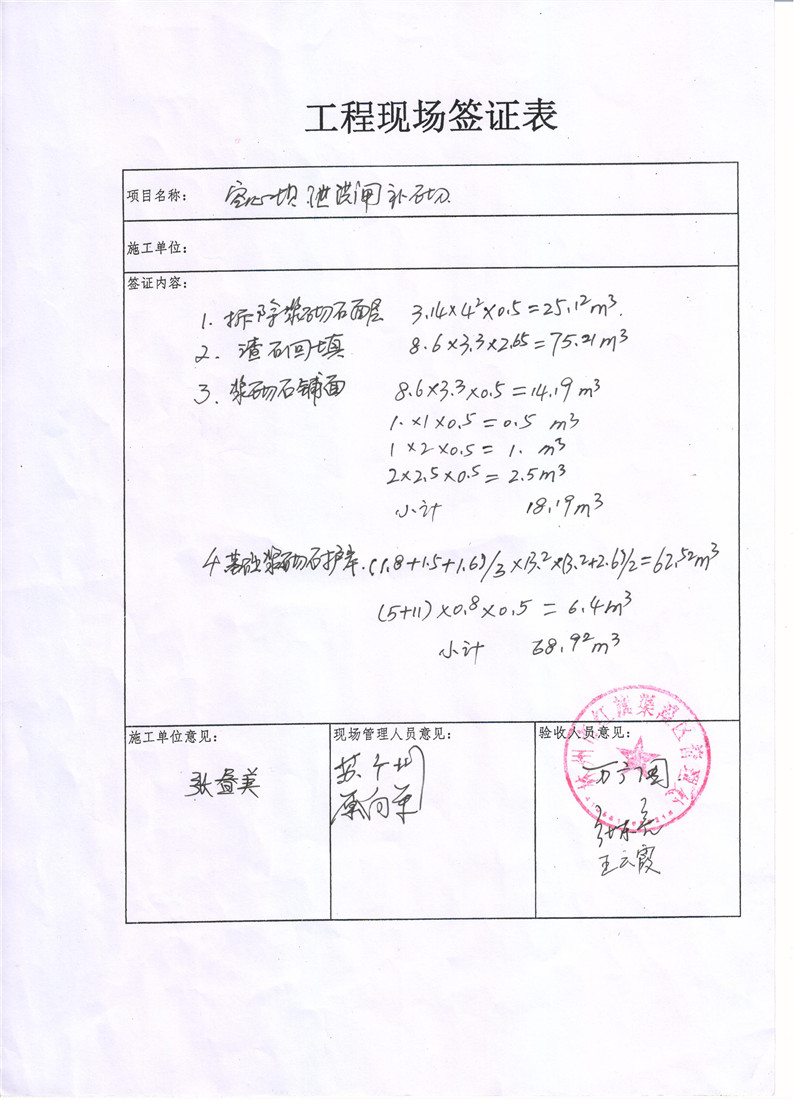 工程现场签证表
项目名称: 空心坝泄洪闸补砌
施工单位:
签证内容:
1. 拆除浆砌石面层 3.14×4²×0.5=25.12m³.
2. 渣石回填 8.6×3.3×2.65=75.21m³
3. 浆砌石铺面 8.6×3.3×0.5=14.19m³
1.×1×0.5=0.5 m³
1×2×0.5=1. m³
2×2.5×0.5=2.5m³
小计 18.19m³
4 基础浆砌石护岸.(1.8+1.5+1.6)/3×13.2×(3.2+2.6)/2=62.52m³
(5+11)×0.8×0.5=6.4m³
小计 68.92m³
施工单位意见: 现场管理人员意见: 验收人员意见:
林州市红旗渠灌区管理
王云霞